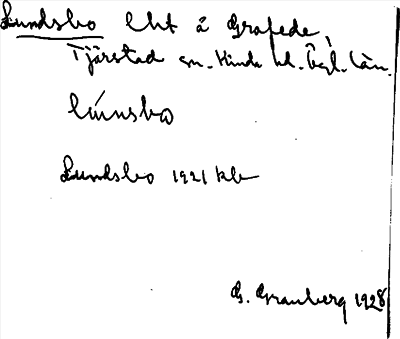 Lundsbo lht å Grafede,
Tjärstad sn. Kinda hd. Ögl. län.
lúnsbo
Lundsbo 1921 kb
G. Granberg 1928